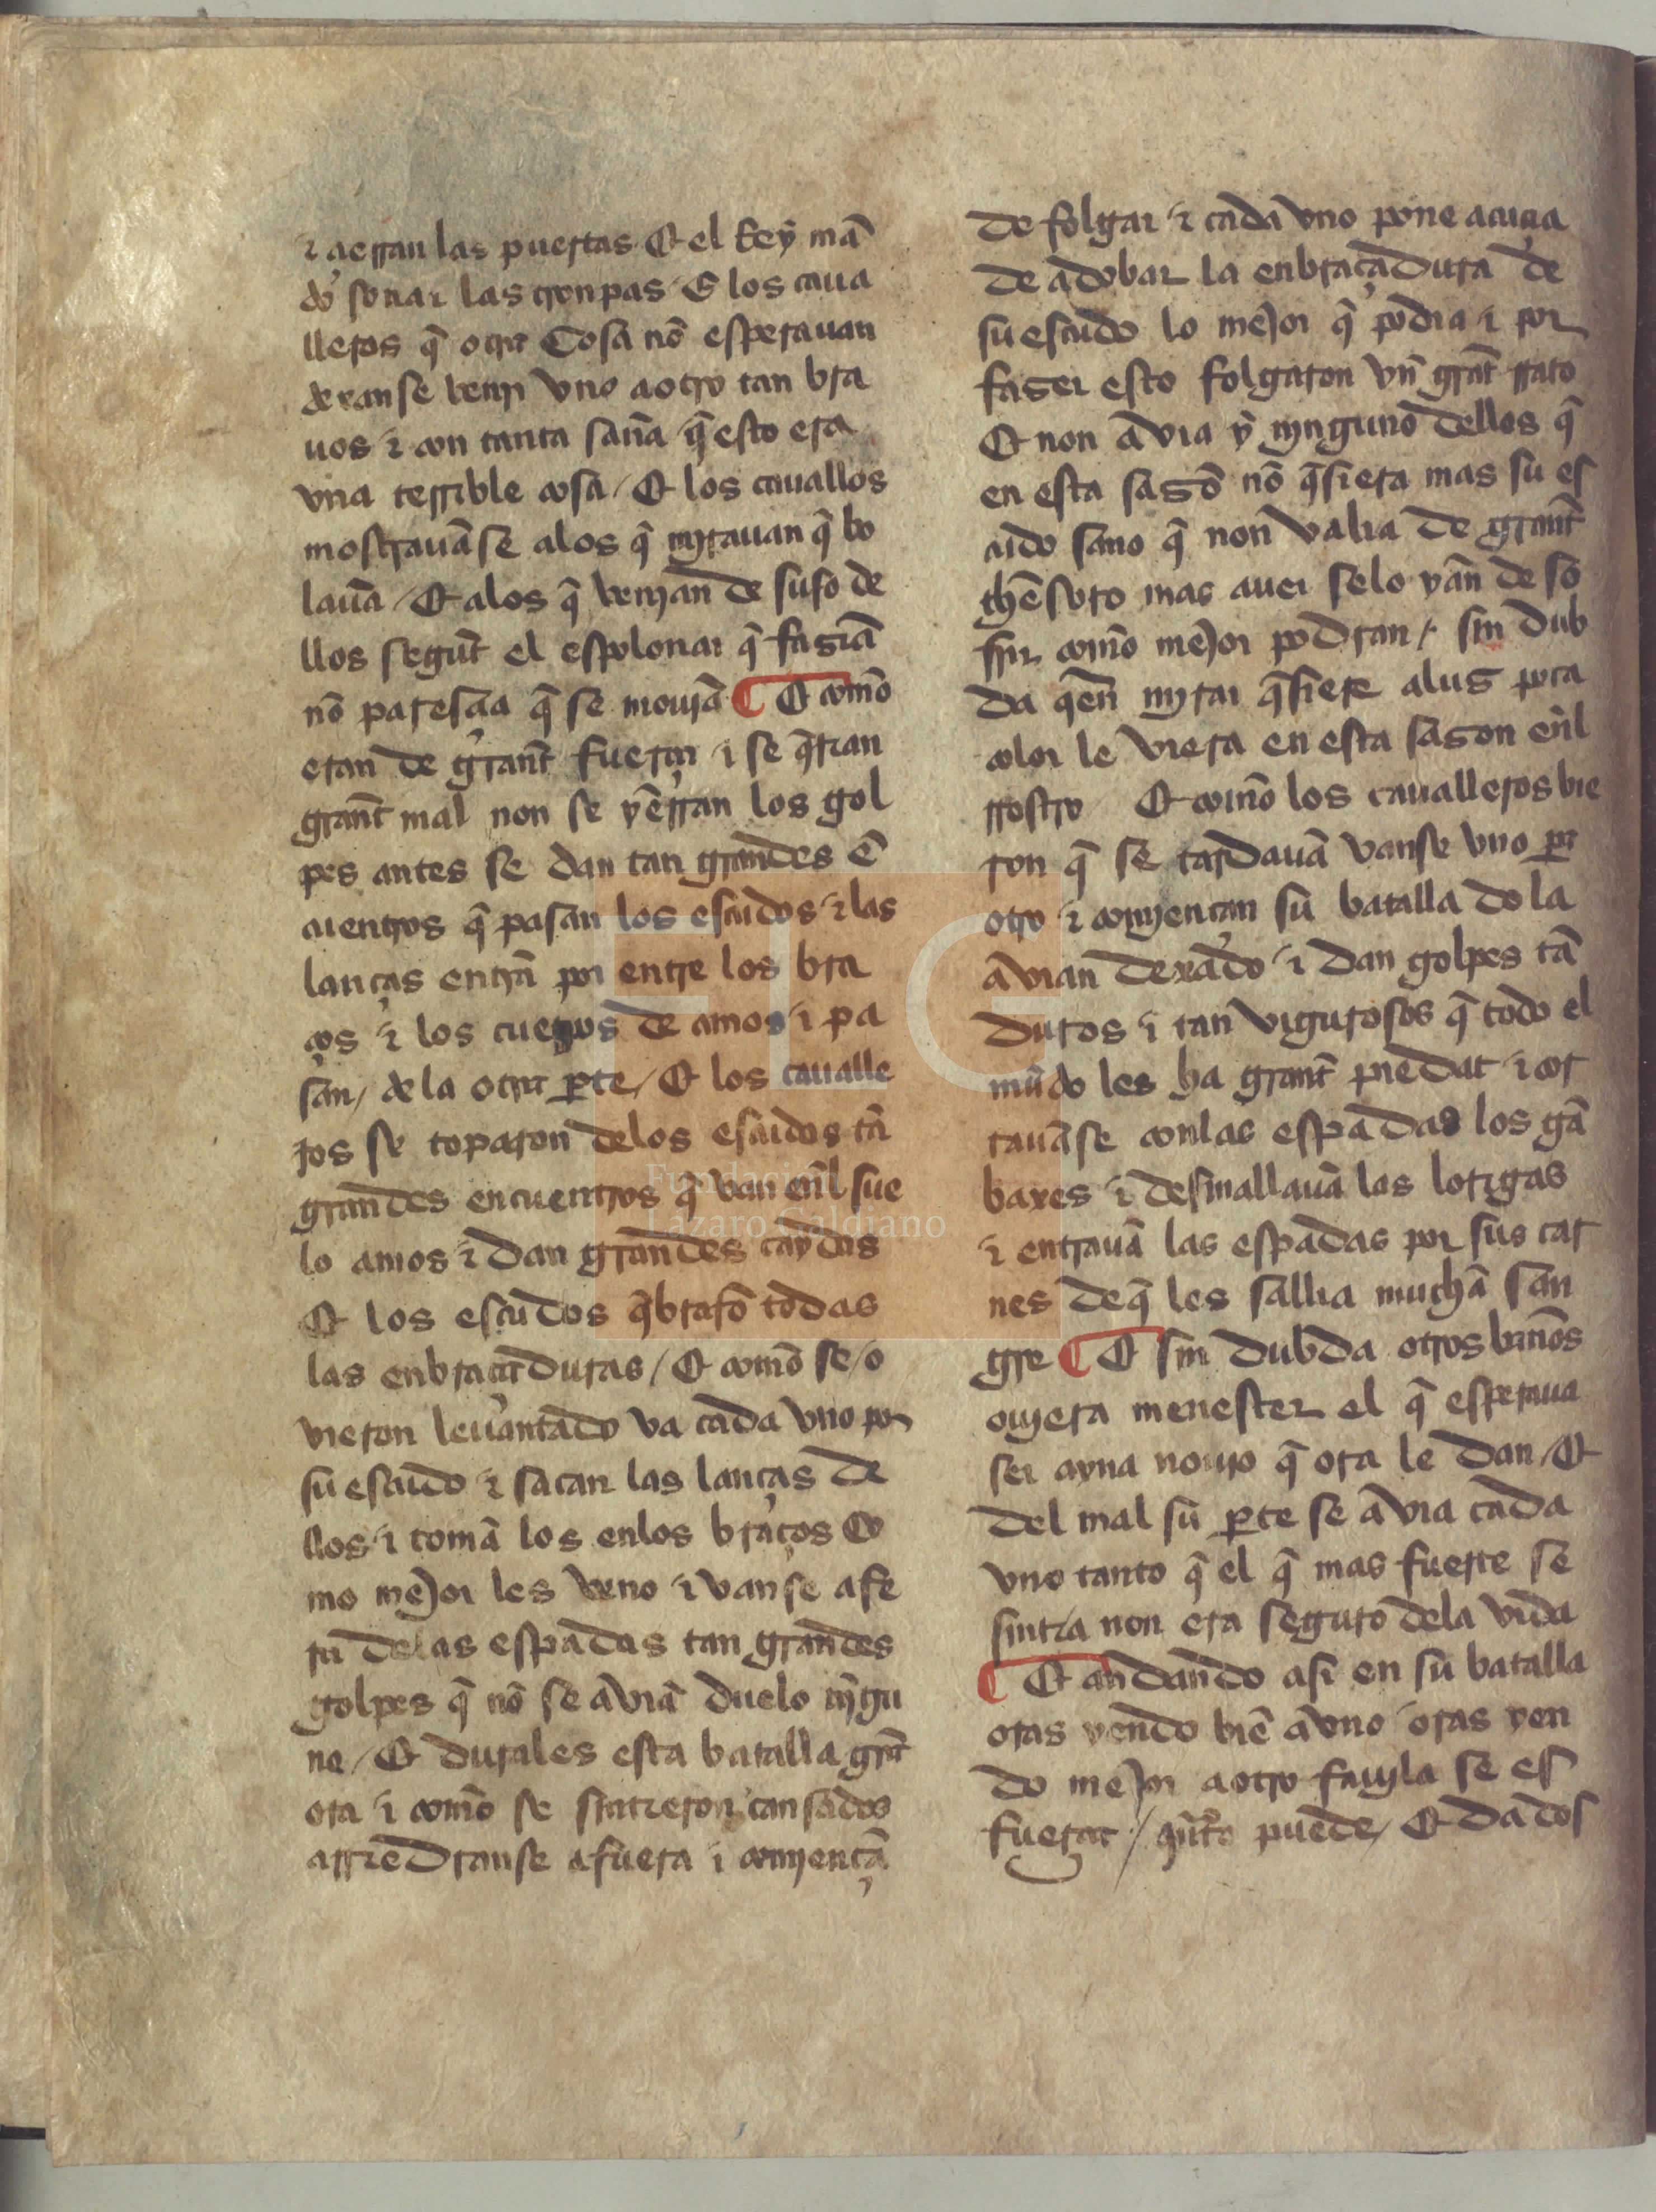 ⁊ açerran las puertas Et el Rey mã
do sonar las tronpas E los caua
lleros q̃ otra Cosa nõ esperauan
dexanse venir vno a otro tan bra
uos ⁊ con tanta saña q̃ esto era
vna terrible cosa / Et los cauallos
mostrauãse alos q̃ myrauan q̃ bo
lauã / Et alos q̃ venjan de suso de
llos segũt el espolonar q̃ fasiã
nõ paresçia q̃ se moujã ¶ Et comõ
eran de grant̃ fuerça ⁊ se q̃rian
grant̃ mal non se yẽrran los gol
pes antes se dan tan grandes ẽ
cuentros q̃ pasan los escudos ⁊ las
lanças entrã por entre los bra
ços ⁊ los cuerpos de amos ⁊ pa
san / de la otra ꝑte / Et los caualle
ros se toparon delos escudos tã
grandes encuentros q̃ van eñl sue
lo amos ⁊ dan grandes caydas
Et los escudos q̃brarõ todas
las enbraçaduras / Et comõ se / o
vieron leuantado va cada vno por
su escudo ⁊ sacan las lanças de
llos ⁊ tomã los enlos braços Co
mo mejor les veno ⁊ vanse a fe
rir delas espadas tan grandes
golpes q̃ nõ se aviã duelo nĩgu
no / Et durales esta batalla grãt
ora ⁊ comõ se sintieron cansados
arriedranse afuera ⁊ comjençã
de folgar ⁊ cada vno pone acuçia
de adobar la enbraçadura de
su escudo lo mejor q̃ podia ⁊ por
faser esto folgaron vñ grãt rrato
Et non avia y njnguno dellos q̃
en esta sasõ nõ q̃siera mas su es
cudo sano q̃ non valia de grant̃
thẽsoro mas auer selo yãn de so
frir comõ mejor podran / sin dub
da q̃en mjrar q̃siere alus poca
color le viera en esta sason eñl
rrostro Et comõ los caualleros bie
ron q̃ se tardauã vanse vno par
otro ⁊ comjençan su batalla do la
avian dexado ⁊ dan golpes tã
duros ⁊ tan vigurosos q̃ todo el
mũdo les ha grant̃ piedat ⁊ cor
tauãse conlas espadas los gã
baxes ⁊ desmallauã las lorigas
⁊ entrauã las espadas por sus car
nes deq̃ les sallia mucha san
gre ¶ Et sin dubda otros baños
oujera menester el q̃ esperaua
ser ayna nouio q̃ ora le dan / Et
del mal su ꝑte se avia cada
vno tanto q̃ el q̃ mas fuerte se
sintia non era seguro dela vida
¶ Et andando asi en su batalla
oras yendo biẽ a vno oras yen
do mejor a otro fauila se es
fuerça / quãto puede / Et dados